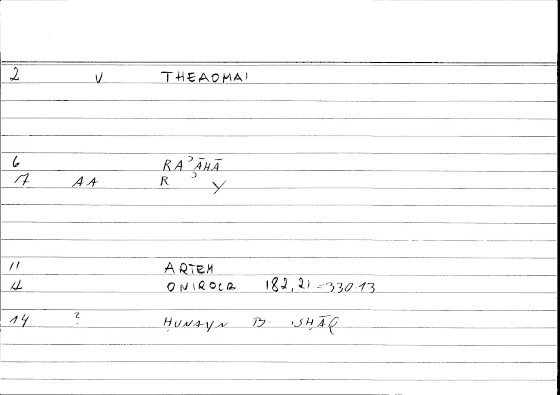 2 V THEAOMAI
6 RAʾĀHĀ
7 AA R ʾ Y
11 ARTEM
4 ONIROCR 182,21 = 330 13
14 ? ḤUNAYN B. ISḤĀQ